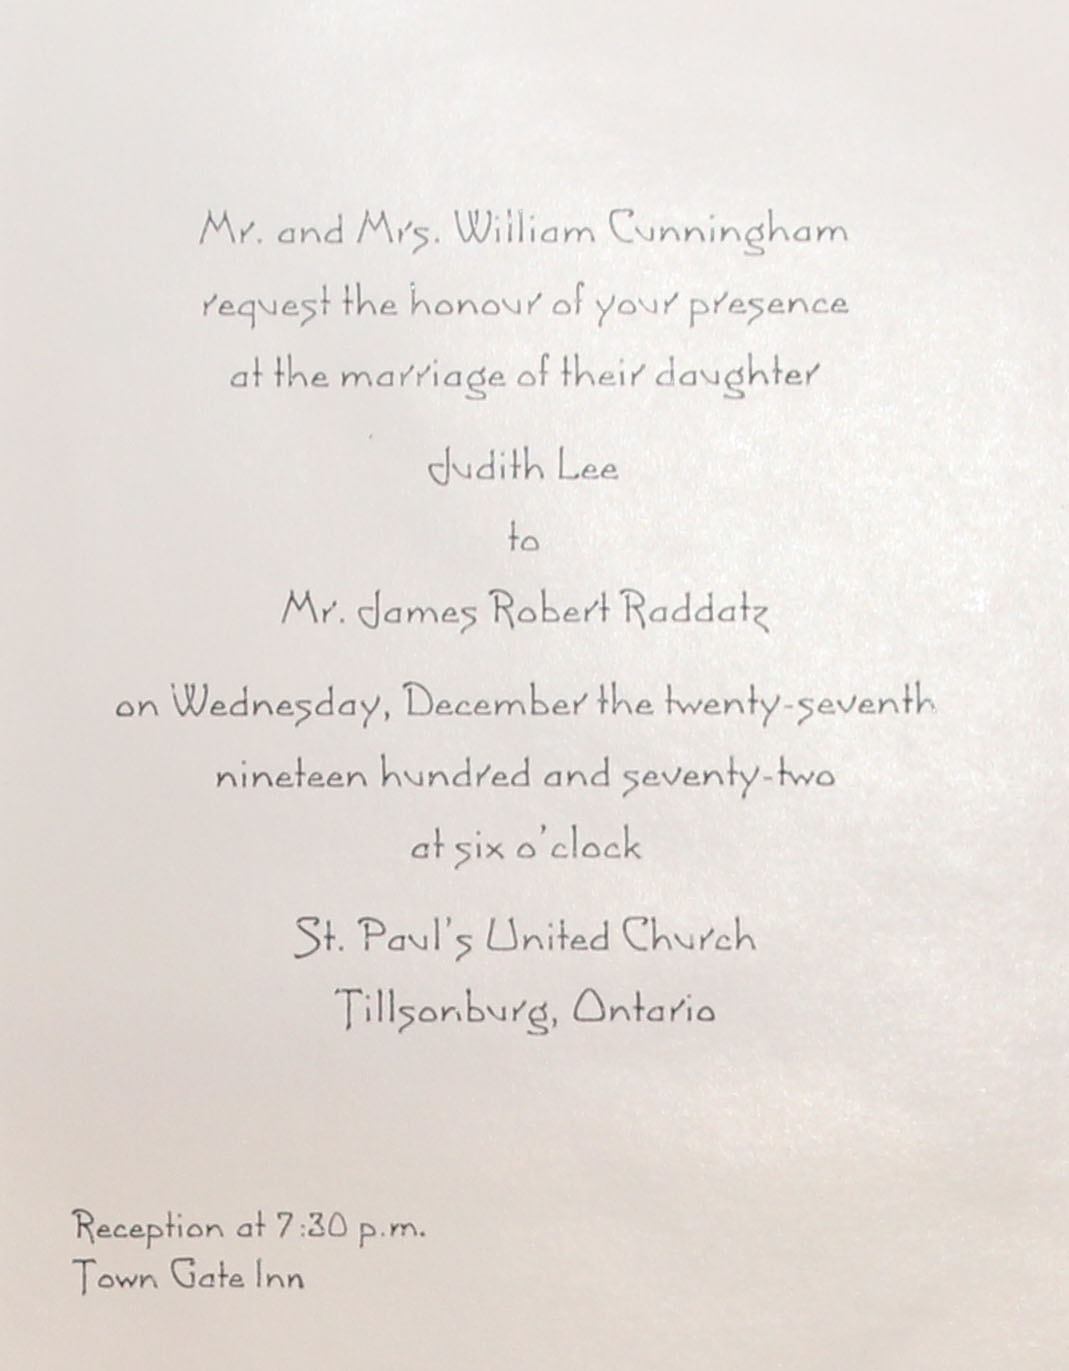 Mr. and Mrs. William Cunningham
request the honour of your presence
at the marriage of their daughter
Judith Lee
to
Mr. James Robert Raddatz
on Wednesday, December the twenty-seventh
nineteen hundred and seventy-two
at six o'clock
St. Paul's United Church
Tillsonburg, Ontario
Reception at 7:30 p.m.
Town Gate Inn